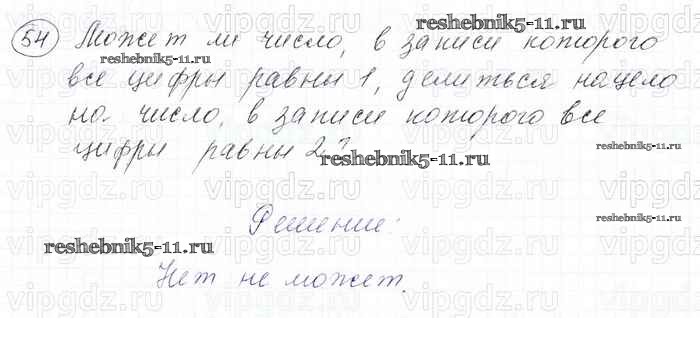 54 Может ли число, в записи которого
все цифры равны 1, делиться нацело
на число, в записи которого все
цифры равны 2?
Решение:
Нет не может.
reshebnik5-11.ru
reshebnik5-11.ru
reshebnik5-11.ru
reshebnik5-11.ru
reshebnik5-11.ru
reshebnik5-11.ru
vipgdz.ru